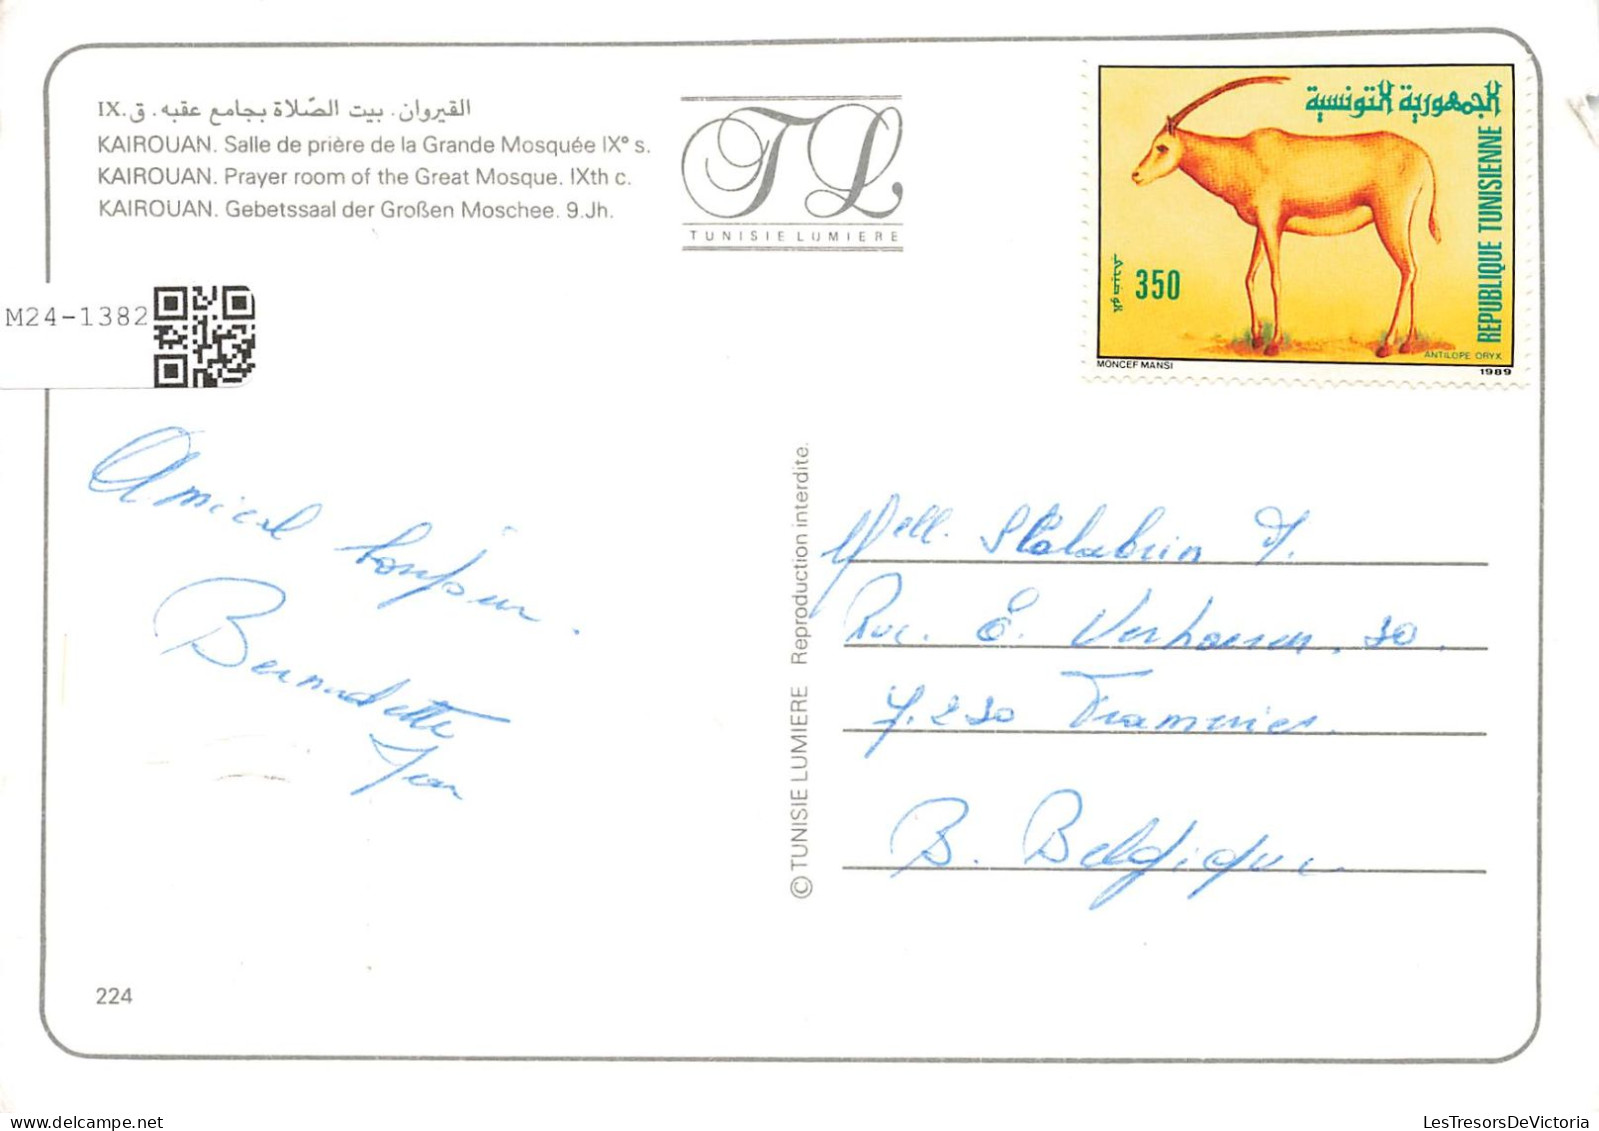 القيروان. بيت الصّلاة بجامع عقبه. ق.IX
KAIROUAN. Salle de prière de la Grande Mosquée IX° s.
KAIROUAN. Prayer room of the Great Mosque. IXth c.
KAIROUAN. Gebetssaal der Großen Moschee. 9.Jh.
TL
TUNISIE LUMIERE
الجمهورية التونسية
REPUBLIQUE TUNISIENNE
350
ANTILOPE ORYX
MONCEF MANSI
1989
M24-1382
Amical bonjour.
Bernadette
© TUNISIE LUMIERE Reproduction interdite.
Mell. J.
Rue. E. Verhaeren. 30.
7.230 Frameries.
B. Belgique.
224
LesTresorsDeVictoria